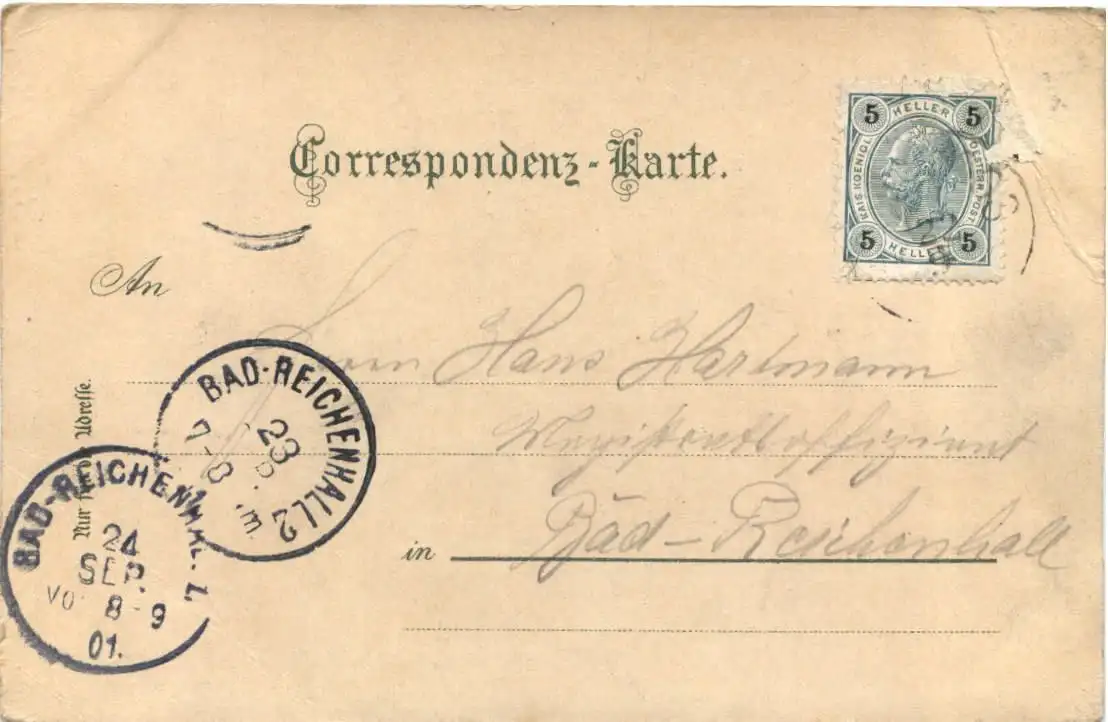 Correspondenz-Karte.
5 HELLER 5
KAIS. KOENIGL. OESTERR. POST.
5 HELLER 5
An
Herrn Hans Hartmann
Magistratsoffiziant
in Bad-Reichenhall
Nur für Adresse.
BAD-REICHENHALL 2
23
7-8
BAD-REICHENHALL 2.
24
SEP.
VO 8-9
01.